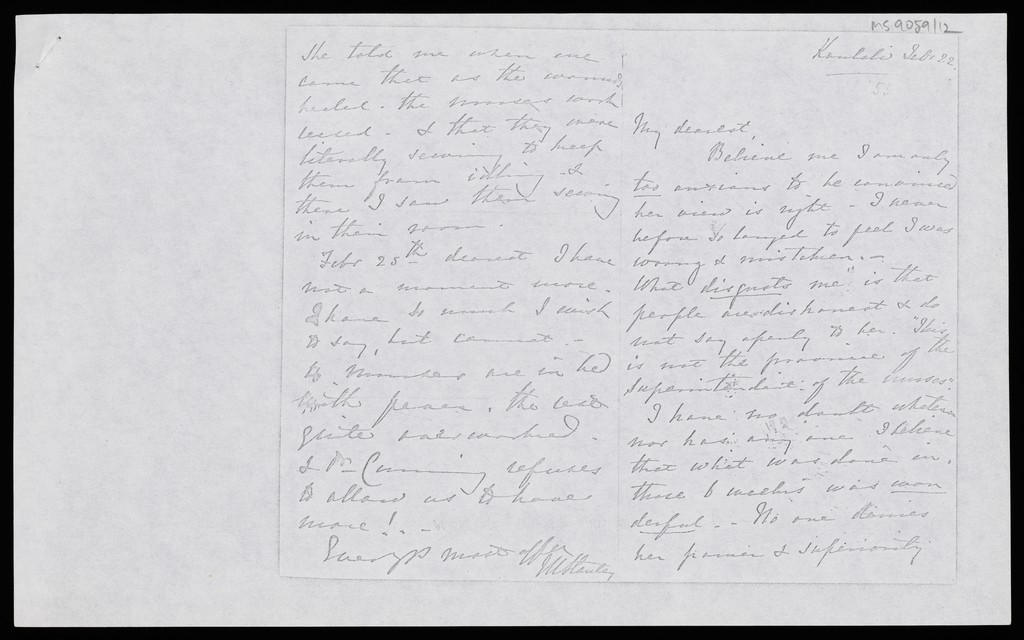 MS 9059/12
She told me when we
came that as the wounds
healed - the nurses work
ceased - & that they were
literally sewing to keep
them from idling - &
there I saw them sewing
in their room.
Feby 25th dearest I have
not a moment more.
I have so much I wish
to say, but cannot. -
6 Nurses are in bed
with fever, the rest
quite overworked -
& Dr Cumming refuses
to allow us to have
more! -
Ever yrs most affec
MStanley
Koulali Feby 22.
55
My dearest,
Believe me I am only
too anxious to be convinced
her view is right - I never
before so longed to feel I was
wrong & mistaken. -
What disgusts me" is that
people are dishonest & do
not say openly to her. "This
is not the province of the
Superintendent of the nurses"
I have no doubt whatever
nor has any one I believe
that what was done in
those 6 weeks was won
derful - - No one denies
her power & superiority